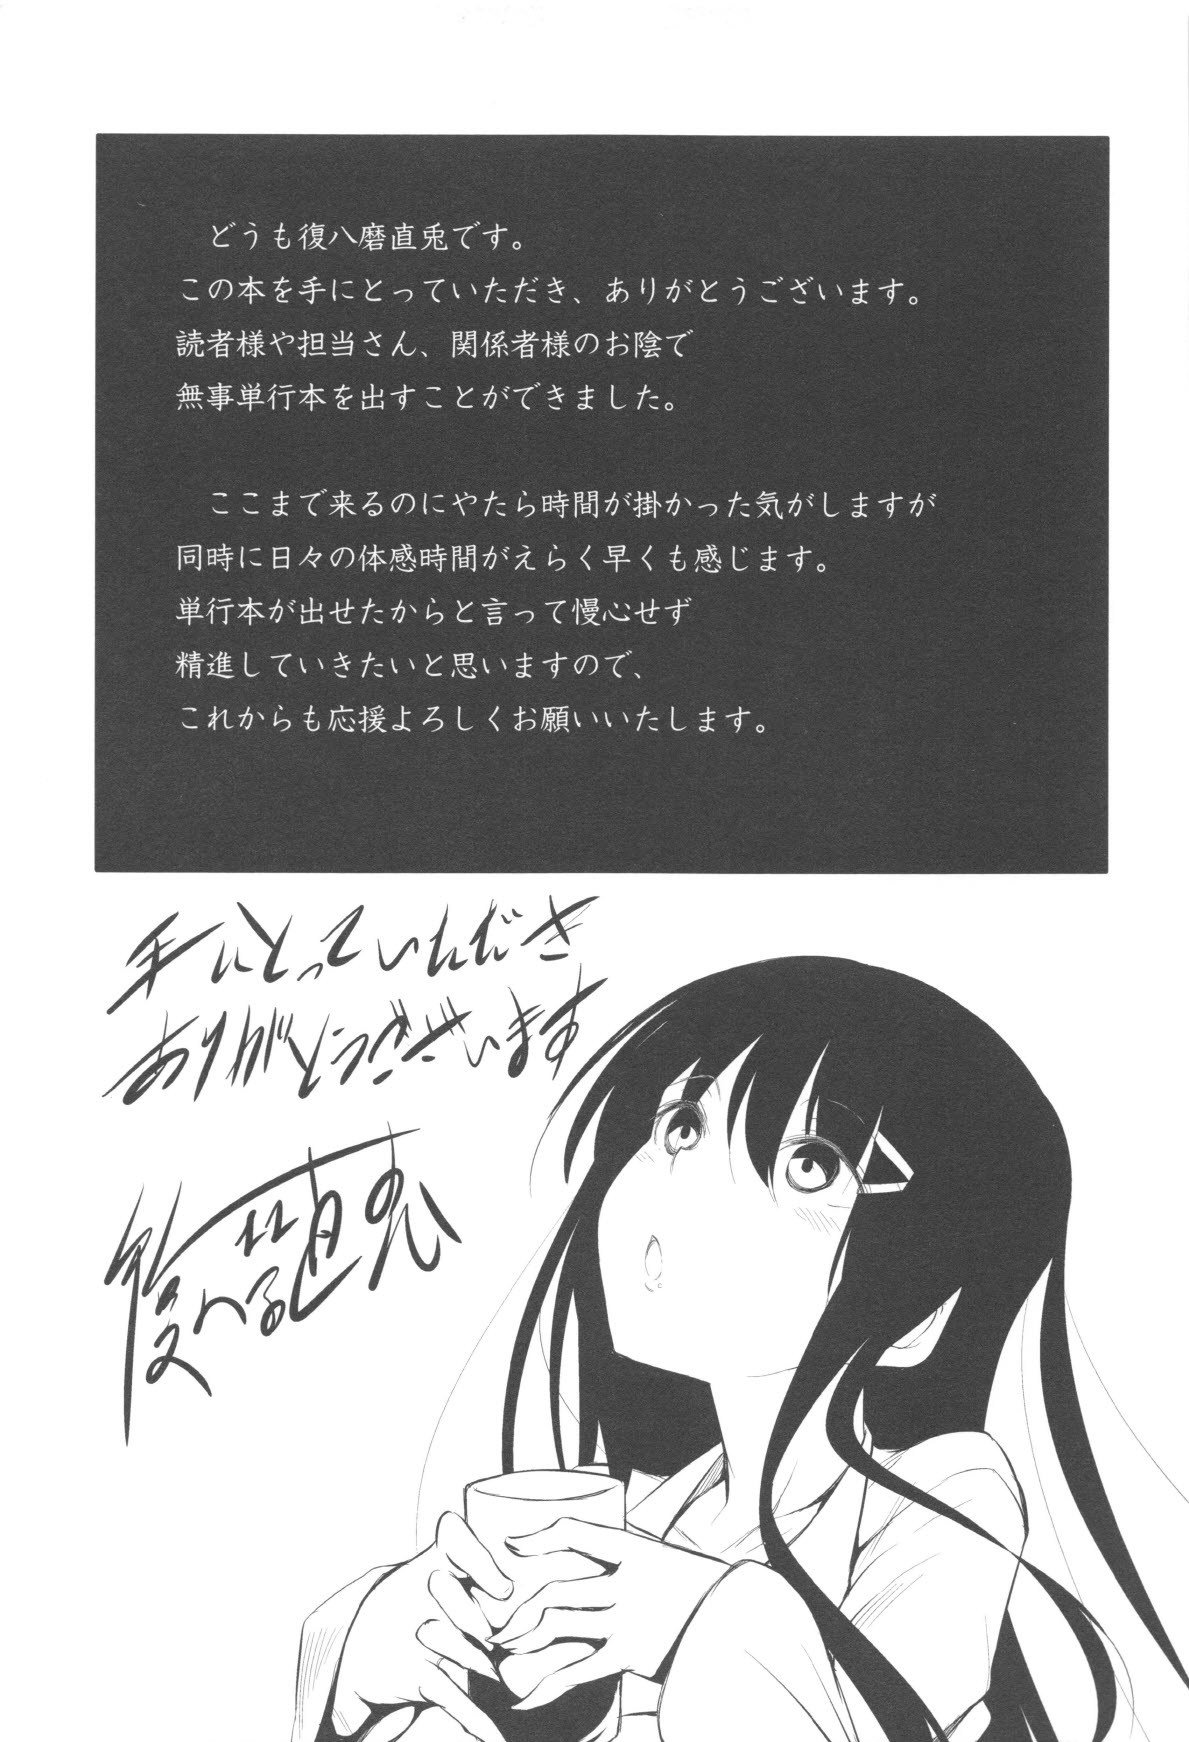 どうも復八磨直兎です。
この本を手にとっていただき、ありがとうございます。
読者様や担当さん、関係者様のお陰で
無事単行本を出すことができました。
ここまで来るのにやたら時間が掛かった気がしますが
同時に日々の体感時間がえらく早くも感じます。
単行本が出せたからと言って慢心せず
精進していきたいと思いますので、
これからも応援よろしくお願いいたします。
手にとっていただき
ありがとうございます
復八磨直兎